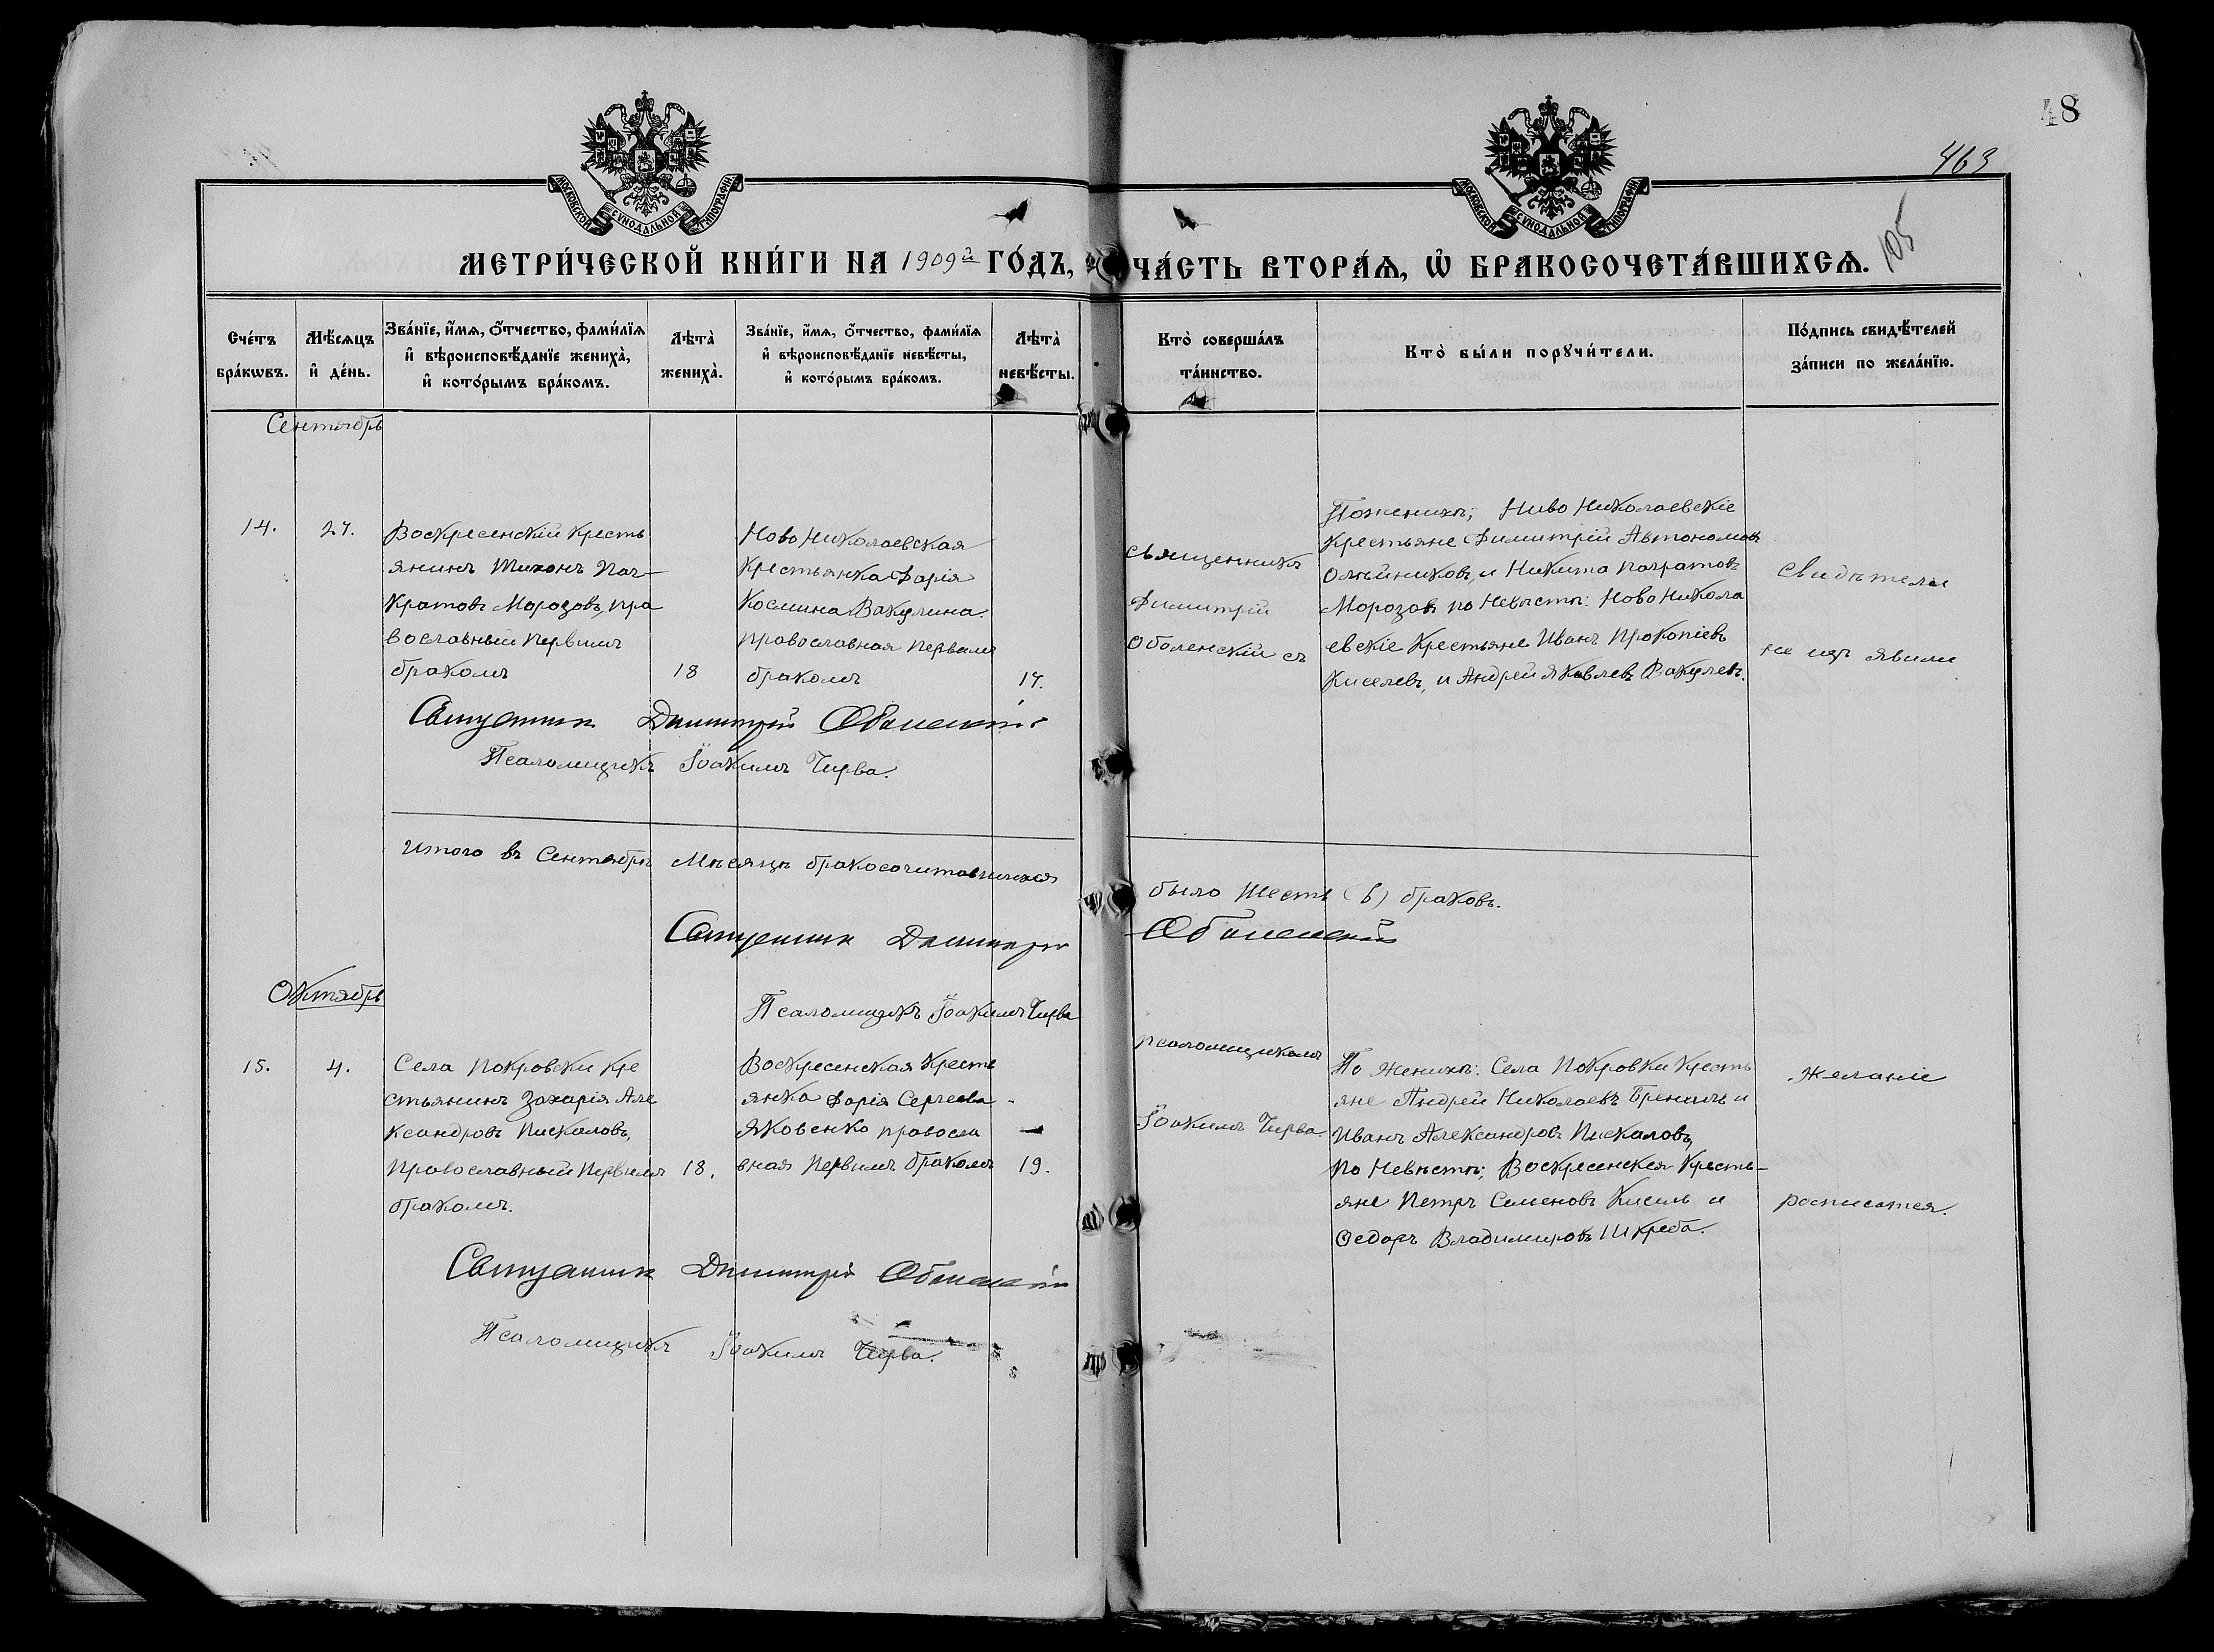 48
463
105
МОСКОВСКОЙ СУНОДАЛЬНОЙ ТИПОГРАФІИ
МОСКОВСКОЙ СУНОДАЛЬНОЙ ТИПОГРАФІИ
МЕТРИ́ЧЕСКОЙ КНИ́ГИ НА 1909й ГО́ДЪ,
ЧА́СТЬ ВТОРА́Ѧ, Ѽ БРАКОСОЧЕТА́ВШИХСѦ.
Сче́тъ бра́кѡвъ.
Мѣ́сѧцъ и҆ де́нь.
Зва́нїе, и҆́мѧ, ѻ҆́тчество, фами́лїѧ и҆ вѣроисповѣ́данїе жениха̀, и҆ кото́рымъ бра́комъ.
Лѣта̀ жениха̀.
Зва́нїе, и҆́мѧ, ѻ҆́тчество, фами́лїѧ и҆ вѣроисповѣ́данїе невѣ́сты, и҆ кото́рымъ бра́комъ.
Лѣта̀ невѣ́сты.
Кто̀ соверша́лъ та́инство.
Кто̀ бы́ли порꙋчи́тели.
По́дпись свидѣ́телей за́писи по жела́нїю.
Сентябрь
14.
27.
Воскресенскій кресть
янинъ Тихонъ Пан-
кратовъ Морозовъ, пра
вославный первымъ
бракомъ
18
Ново Николаевская
крестьянка Дарія
Космина Вакулина.
православная первымъ
бракомъ
17.
священникъ
Димитрій
Оболенскій съ
По женихѣ; Ниво Николаевскіе
крестьяне Димитрій Автономовъ
Олейниковъ, и Никита Панратовъ
Морозовъ по невѣсте: Ново Никола
евскіе крестьяне Иванъ Прокопіевъ
Киселевъ, и Андрей Яковлевъ Вакулевъ.
Свидѣтели
не изъявили
Священник Димитрій Оболенскій
Псаломщикъ Іоакимъ Черва.
Итого въ Сентябрѣ Мѣсяцѣ бракосочитавшихся
было шесть (6) браковъ.
Священник Димитрій
Оболенскій
Октябрь
Псаломщикъ Іоакимъ Черва
15.
4.
Села Покровки кре
стьянинъ Захарія Але
ксандровъ Пискаловъ,
Православный первымъ
бракомъ.
18.
Воскресенская кресть
янка Дарія Сергеева
Яковенко правосла
вная первымъ бракомъ
19.
псаломщикомъ
Іоакимъ Черва.
По женихѣ: Села Покровки кресть
яне Андрей Николаевъ Бренчль и
Иванъ Александровъ Пискаловъ,
По невѣсте; Воскресенскея кресть-
яне Петръ Семеновъ Кисиль и
Ѳедоръ Владимировъ Шкреба.
желаніе
росписатся.
Священник Димитрій Оболенскій
Псаломщикъ Іоакимъ Черва.